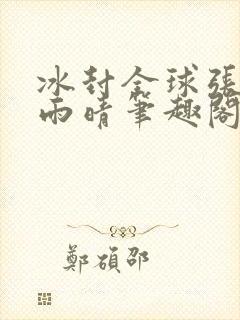 冰封全球張
雨晴筆趣閣
鄭碩邵